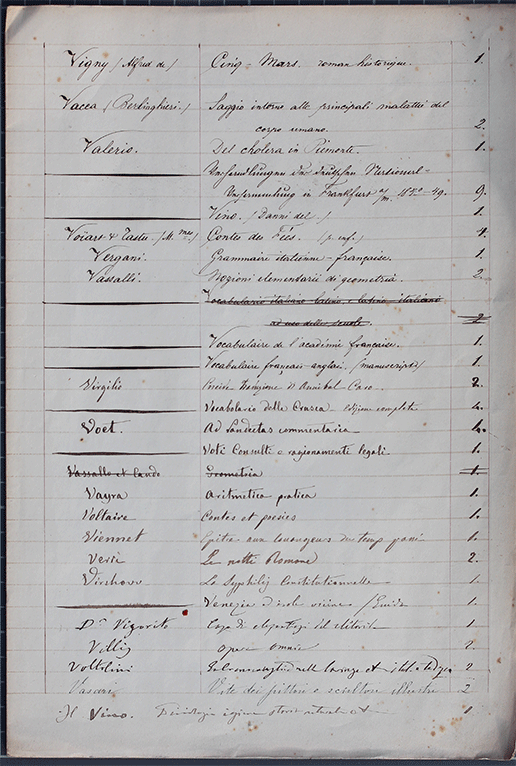 Vigny (Alfred de) Cinq-Mars. roman historique. 1.
Vacca (Berlinghieri.) Saggio intorno alle principali malattie del
corpo umano. 2.
Valerio. Del cholera in Piemonte. 1.
Verhandlungen der deutschen National-
Versammlung in Frankfurt a/m. 9.
Vino. (Danni del) 1.
Voïart & Tastu. (M. mes) Contes des Fées. (p. enf.) 1.
Vergani. Grammaire italienne-française. 1.
Vassalli. Nozioni elementari di geometria. 2.
Vocabolario italiano latino, e latino-italiano
ad uso delle scuole. 2
Vocabulaire de l'académie française. 1.
Vocabulaire français-anglais. (manuscript) 1.
Virgilio Eneide Traduzione d'Annibal Caro. 2.
Vocabolario della Crusca Edizione completa 4.
Voet. Ad Pandectas commentaria
Voti Consulti e ragionamente legali. 1.
Vassallo et Geometria 1.
Vayra Aritmetica pratica 1.
Voltaire Contes et poésies 1.
Viennet Epitre aux du temps passé 1.
Verri Le notti Romane 2.
Virchow La Syphilis Constitutionnelle 1.
Venezia e isole vicine /Guida 1.
1.
Willis opera omnia 2
Voltolini 2
Vasari Vite dei pittori e scultori illustri 2
Il Vino. 1